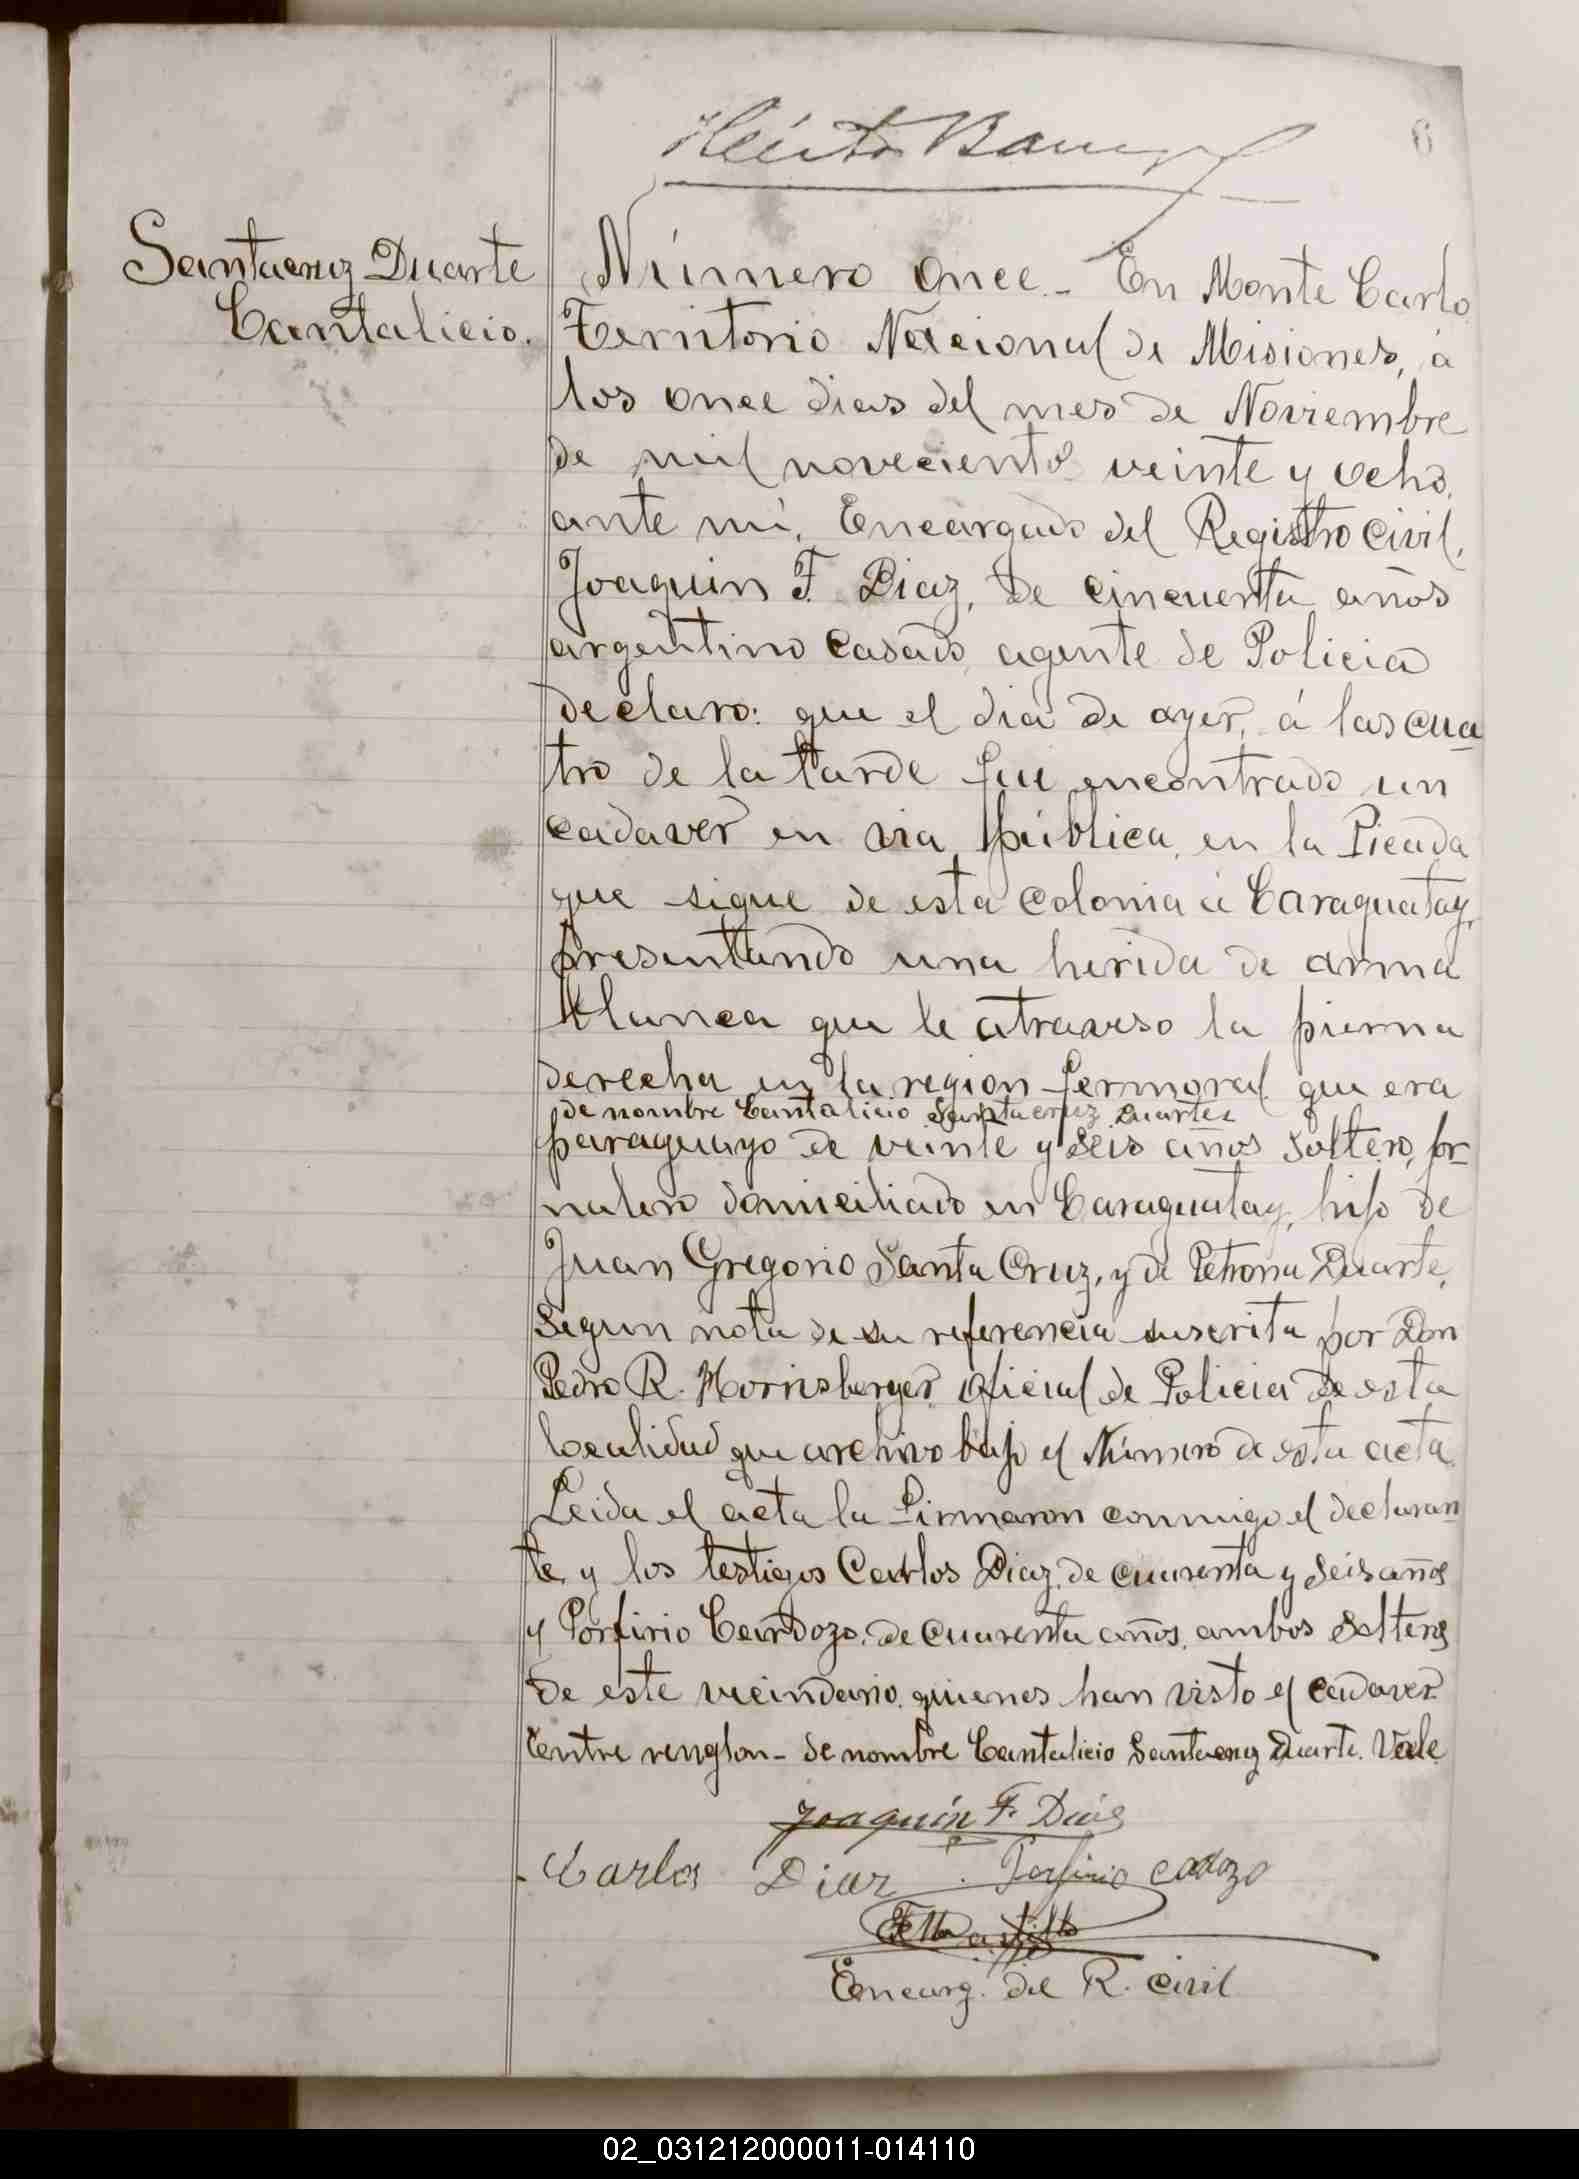 6
Santacruz Duarte
Cantalicio.
Número once.- En Monte Carlo
Territorio Nacional de Misiones, á
los once dias del mes de Noviembre
de mil novecientos veinte y ocho,
ante mi, Encargado del Registro Civil,
Joaquin F. Diaz, de cincuenta años
argentino casado, agente de Policia
declaro: que el dia de ayer, á las cua
tro de la tarde fue encontrado un
cadaver en via pública, en la Picada
que sigue de esta colonia á Caraguatay,
presentando una herida de arma
blanca que le atraveso la pierna
derecha en la region fermoral que era
de nombre Cantalicio Santacruz Duarte
paraguayo de veinte y seis años soltero, jor
nalero domiciliado en Caraguatay, hijo de
Juan Gregorio Santa Cruz, y de Petrona Duarte,
Segun nota de su referencia suscrita por Don
Pedro R. Hornsberger oficial de Policia de esta
localidad que archivo bajo el Número de esta acta
Leida el acta la firmaron conmigo el declaran
te, y los testigos Carlos Diaz, de cuarenta y seis años
y Porfirio Cardozo, de cuarenta años, ambos solteros
de este vecindario, quienes han visto el cadaver
Entre renglon- de nombre Cantalicio Santacruz Duarte. Vale
Joaquín F. Diáz
Carlos Diaz Porfirio Cadozo
Encarg. del R. Civil
02_031212000011-014110